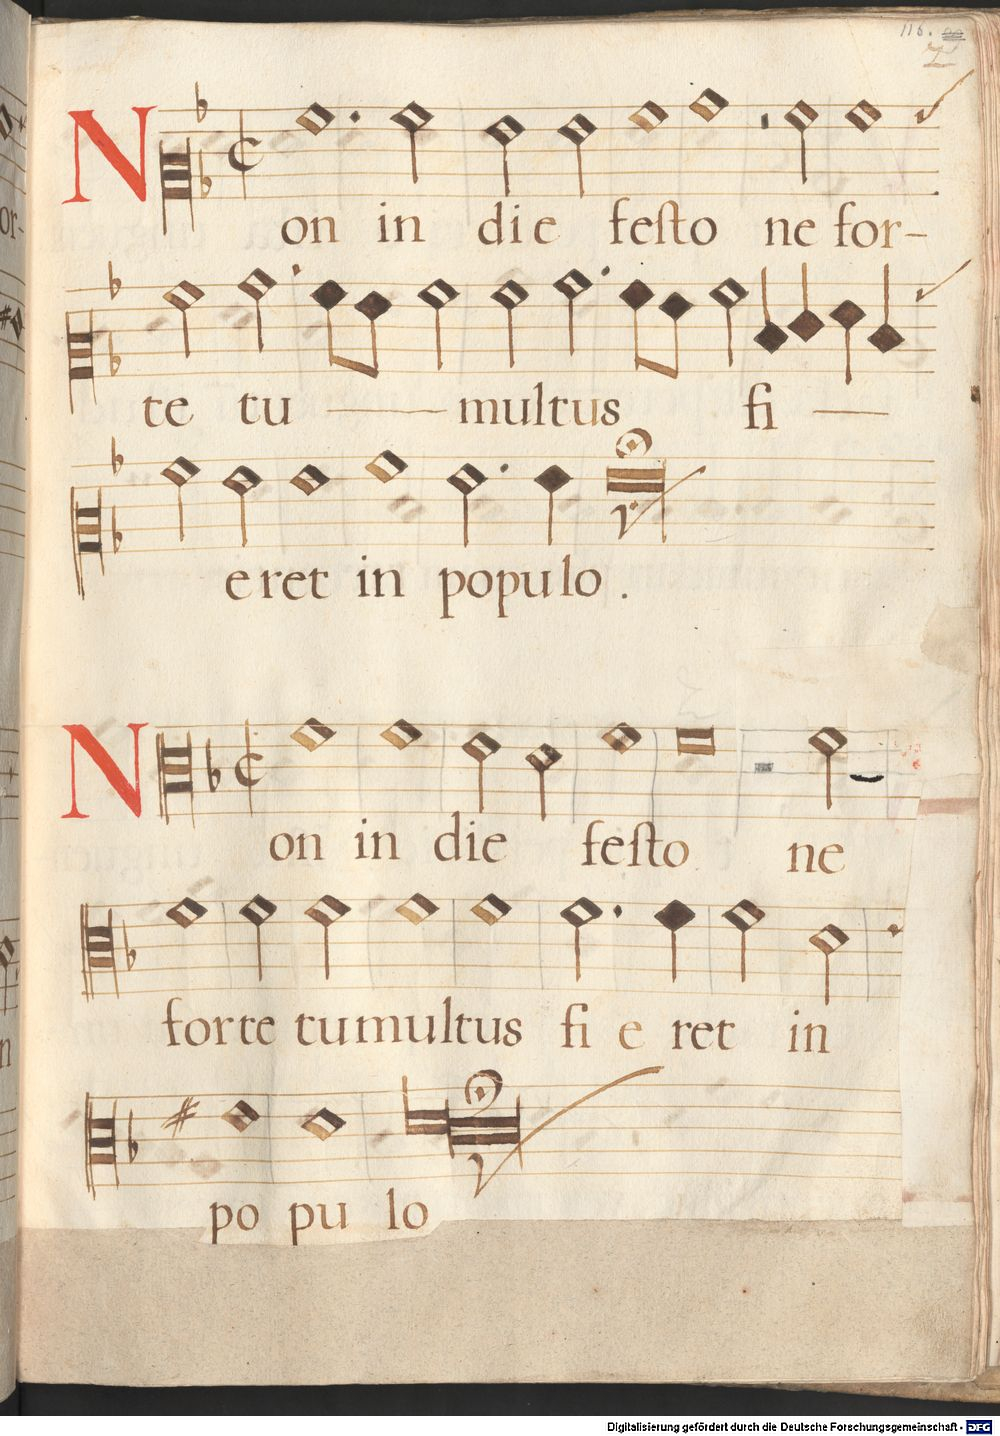 116.
Non in die festo ne for-
te tu multus fi
eret in populo.
Non in die festo ne
forte tumultus fi e ret in
po pu lo
Digitalisierung gefördert durch die Deutsche Forschungsgemeinschaft - DFG